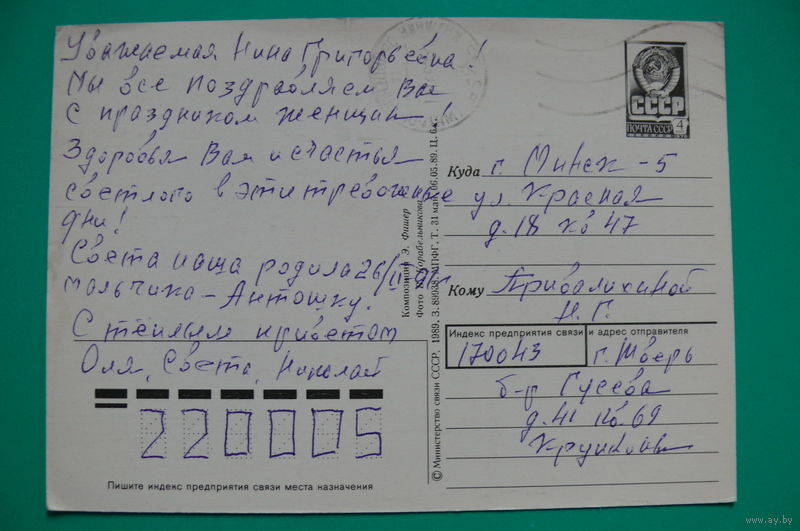 Уважаемая Нина Григорьевна!
Мы все поздравляем Вас
с праздником женщин!
Здоровья Вам и счастья
светлого в эти тревожные
дни!
Света наша родила 26/II
мальчика - Антошку.
С тёплым приветом
Оля, Света, Николай
220005
Пишите индекс предприятия связи места назначения
Композиция Э. Фишер
Фото И. Корабельникова
© Министерство связи СССР, 1989. З. 89938. МПФГ, Т. 31 млн. 06.05.89. Ц. 6 к.
СССР
ПОЧТА СССР 4
Куда г. Минск - 5
ул. Красная
д. 18 кв 47
Кому Привалихиной
Н. Г.
Индекс предприятия связи и адрес отправителя
170043 г. Тверь
б-р Гусева
д. 41 кв. 69
www.ay.by